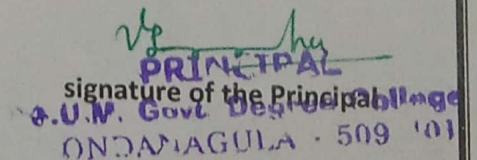 PRINCIPAL
signature of the Principal
Govt Degree College
ONDANAGULA - 509